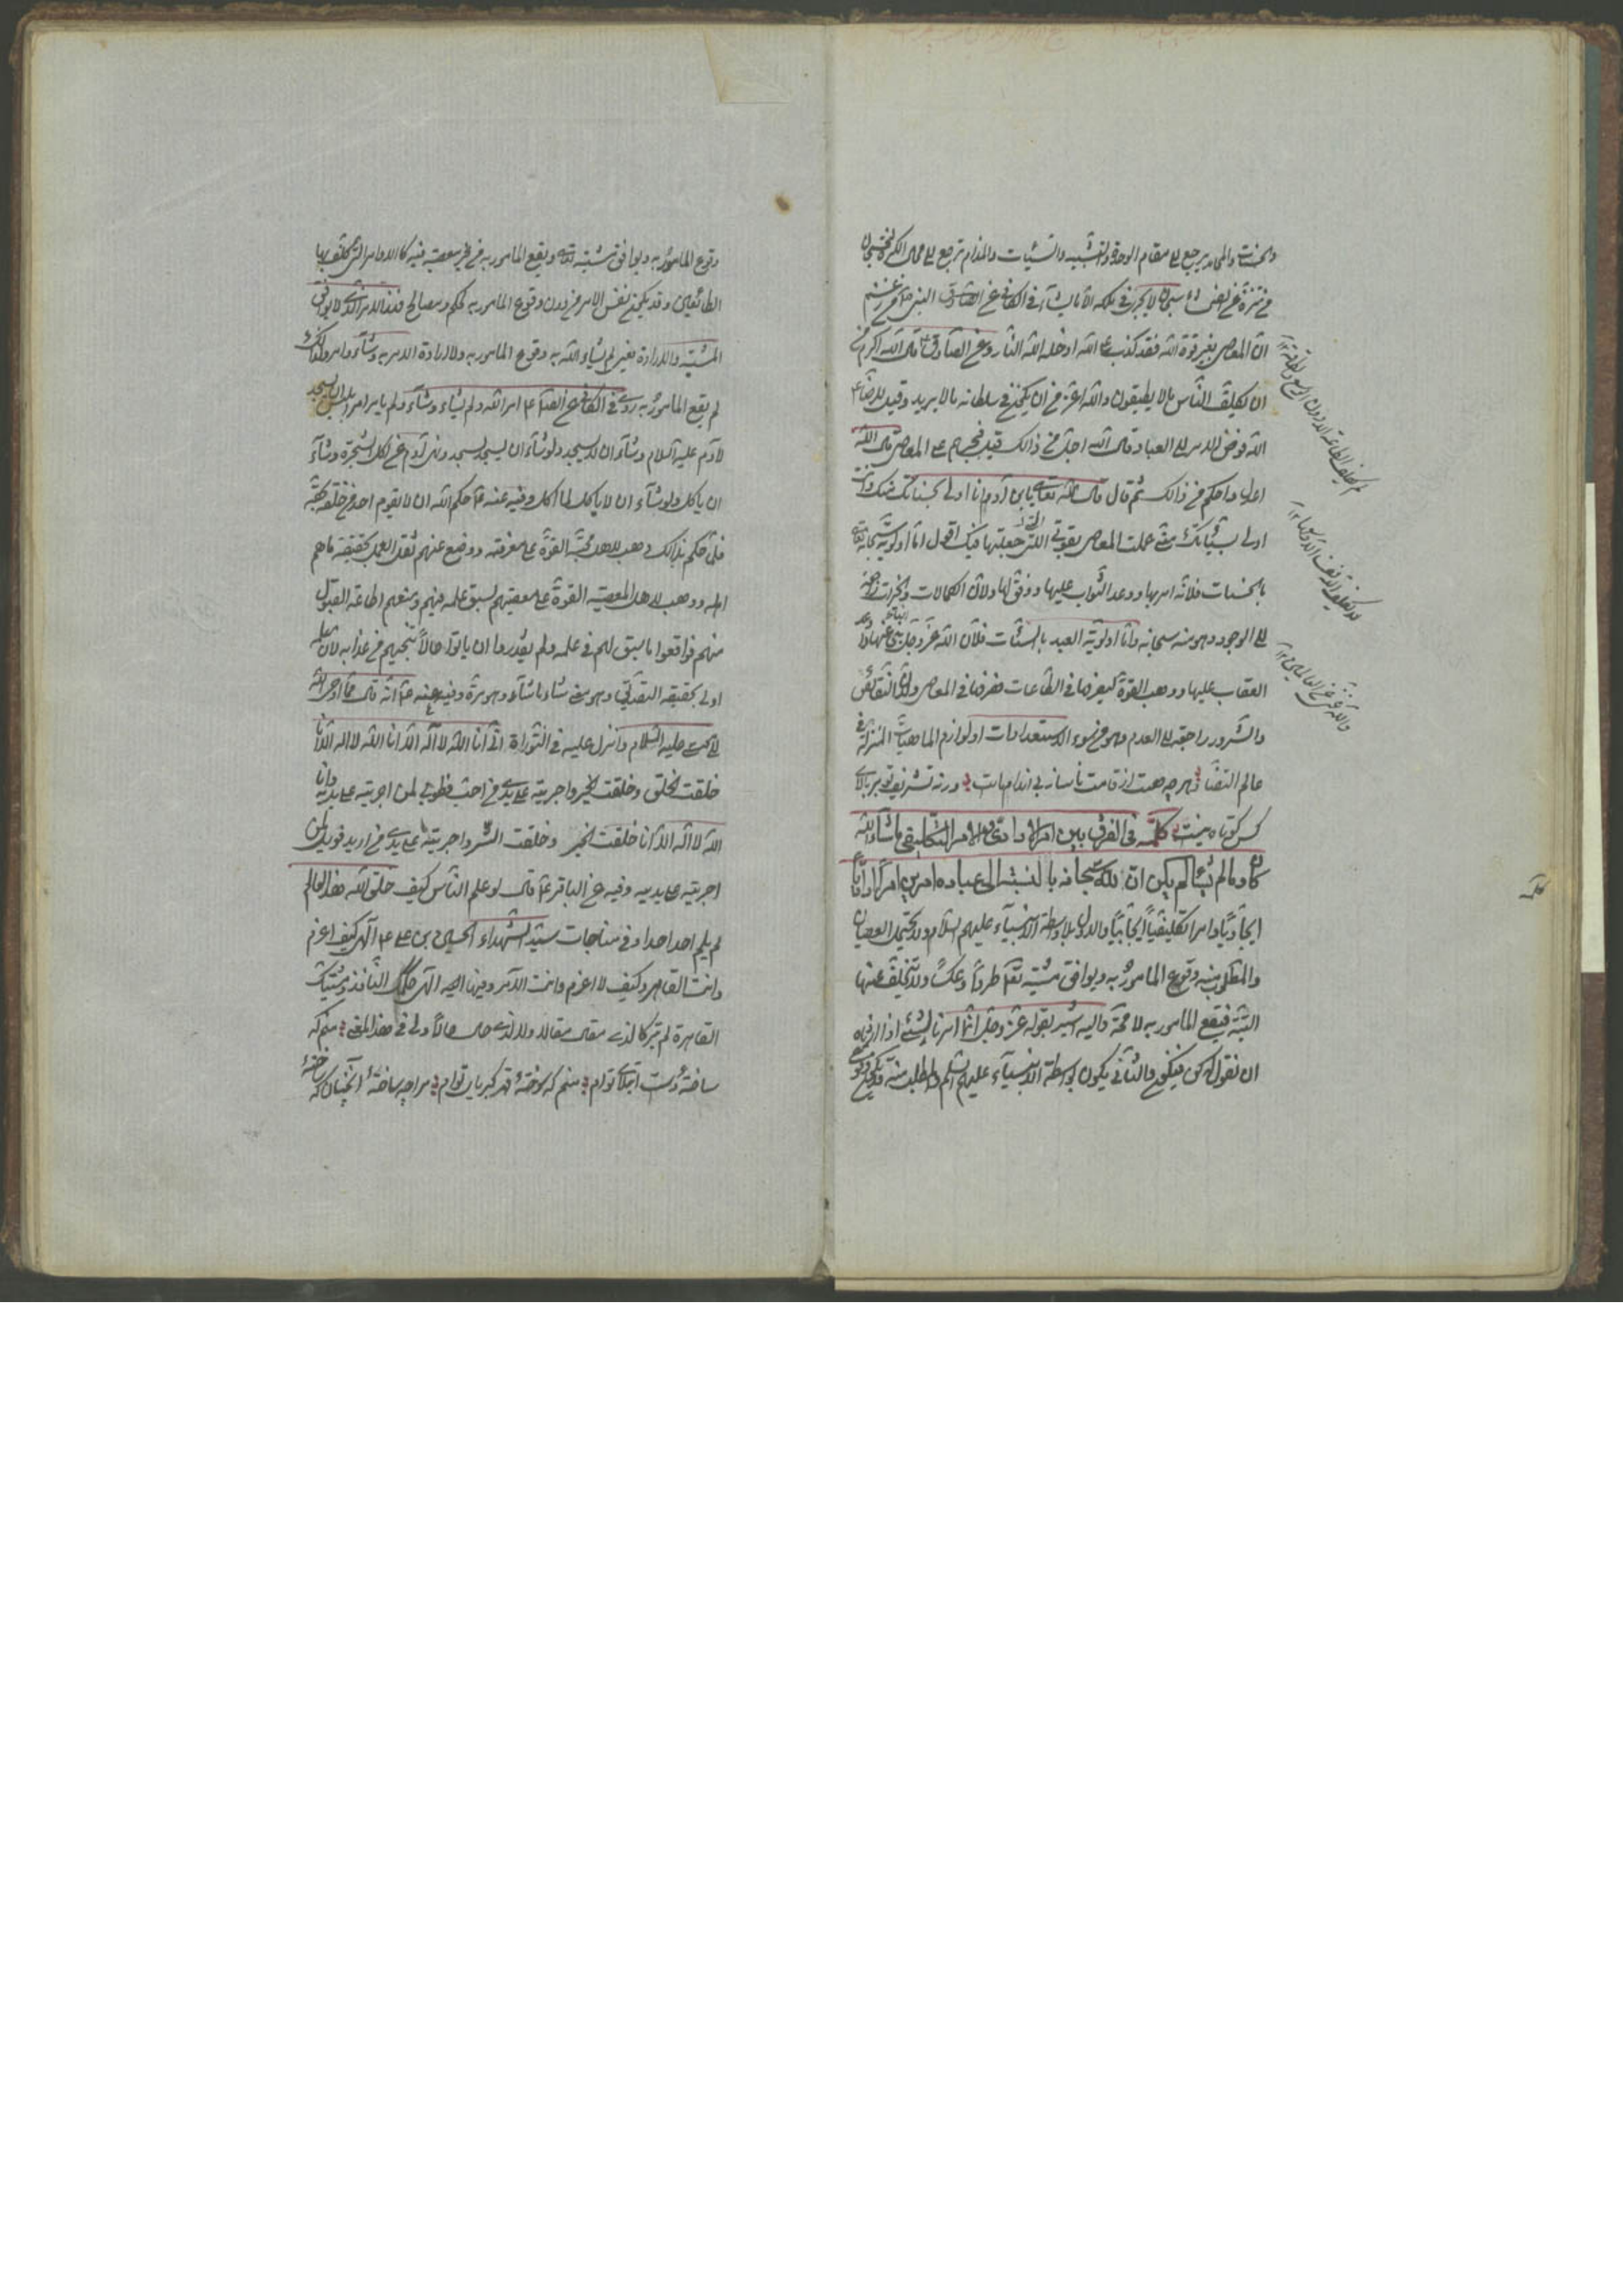 والحسنات والمحامد يرجع الى مقام الوحدة والتشبيه والسيئات والمذام ترجع الى محال الكثرة فسبحان
من تنزه عن الفحشاء سبحان لا يجرى فى ملكه الا ما يشاء فى الكافى عن الصادق النبى من زعم
ان المعاصى بغير قوة الله فقد كذب على الله ادخله الله النار وعن الصادق ع قال الله اكرم من
ان يكلف الناس بما لا يطيقون والله اعز من ان يكون فى سلطانه ما لا يريد وقيل للرضا ع
الله فوض الامر الى العباد قال الله اجل من ذالك قيل فجبرهم على المعاصى قال الله
اعدل واحكم من ذالك ثم قال قال الله تعالى يا بن آدم انا اولى بحسناتك منك وانت
اولى بسيئاتك منى عملت المعاصى بقوتى التى جعلتها فيك اقول اما اولويته سبحانه
بالحسنات فلانه امر بها ووعد الثواب عليها ووفق لها ولان الكمالات والخيرات راجعة
الى الوجود وهو منه سبحانه واما اولوية العبد بالسيئات فلان الله عز وجل نهى عنها
العقاب عليها ووهب القوة ليصرفها فى الطاعات فصرفها فى المعاصى ولان النقائص
والشرور راجعة الى العدم وهو من سوء الاستعدادات او لوازم الماهيات المنزلة فى
عالم التضاد هر چه هست از قامت ناساز بى اندام ماست ورنه تشريف تو بر بالاى
كس كوتاه نيست كلمة فى الفرق بين الامر الارادى والامر التكليفى ما شاء الله
كان وما لم يشأ لم يكن ان لله سبحانه بالنسبة الى عباده امرين امرا اراديا
ايجاديا وامرا تكليفيا ايجابيا والاول بلا واسطة الانبياء عليهم السلام ولا يحتمل العصيان
والمطلوب منه وقوع المامور به ويوافق مشيته تعالى طردا وعكسا ولا يتخلف عنها
البتة فيقع المامور به لا محة واليه اشير بقوله عز وجل انما امرنا لشئ اذا اردناه
ان نقول له كن فيكون والثانى يكون بواسطة الانبياء عليهم السلم والمطلوب منه قد يكون
كلمة
وقوع المامور به ويوافق مشيته تعالى ويقع المامور به من غير معصية فيه كالاوامر التى كلف بها
الطائعين وقد يكون نفس الامر من دون وقوع المامور به لحكم ومصالح فهذا الامر الذى لا يوافق
المشية والارادة يعنى لم يشاء الله به وقوع المامور به ولا ارادة الامر به وشاء وامر ولذلك
لم يقع المامور به روى فى الكافى عن الصادق ع امر الله ولم يشاء وشاء ولم يامر امر ابليس ان يسجد
لآدم عليه السلام وشاء ان لا يسجد ولو شاء ان يسجد لسجد ونهى آدم عن اكل الشجرة وشاء
ان ياكل ولو شاء ان لا ياكل لما اكل وفيه عنه ع حكم الله ان لا يقوم احد من خلقه بحقه
فلما حكم بذالك وهب لاهل محبته القوة على معرفته ووضع عنهم ثقل العمل بحقيقة ما هم
اهله ووهب لاهل المعصية القوة على معصيتهم لسبق علمه فيهم ومنعهم اطاعة القبول
منهم فواقعوا ما سبق لهم فى علمه ولم يقدروا ان ياتوا حالا تنجيهم من عذابه لان علمه
اولى بحقيقة التصديق وهو معنى شاء ما شاء وهو سره وفيه عنه ع انه قال مما اوحى الله
الى موسى عليه السلام وانزل عليه فى التوراة انى انا الله لا اله الا انا الله لا اله الا انا
خلقت الخلق وخلقت الخير واجريته على يدى من احب فطوبى لمن اجريته على يديه وانا
الله لا اله الا انا خلقت الخير وخلقت الشر واجريته على يدى من اريد فويل لمن
اجريته على يديه وفيه عن الباقر ع قال لو علم الناس كيف خلق الله هذا العالم
لم يلم احد احدا وفى مناجات سيد الشهداء الحسين بن على ع الهى كيف اعزم
وانت القاهر وكيف لا اعزم وانت الآمر الهى حكمك النافذ ومشيتك
القاهرة لم تتركا لذى مقال مقالا ولا لذى حال حالا ولى فى هذا المعنى منم كه
ساختهٔ دست ابتلاى توام منم كه سوختهٔ قهر كبرياى توام مرا چه ساختهٔ آنچنان كه